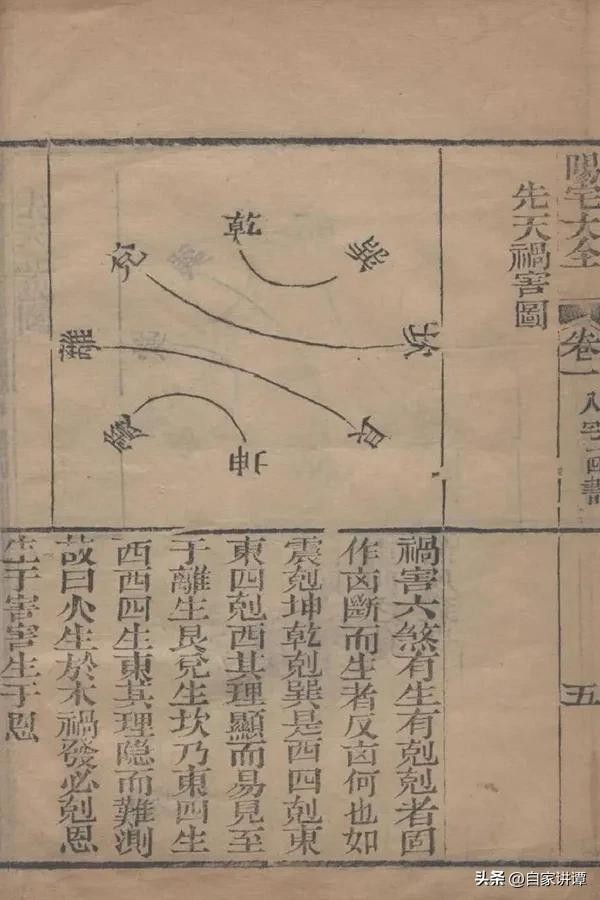 陽宅大全
卷一
八宅四書
五
先天禍害圖
巽
乾
兌
坎
離
艮
震
坤
禍害六煞有生有剋剋者固
作凶斷而生者反凶何也如
震剋坤乾剋巽是西四剋東
東四剋西其理顯而易見至
于離生艮兌生坎乃東四生
西西四生東其理隐而難測
故曰火生於木禍發必剋恩
生于害害生于恩
头条 @自家讲谭